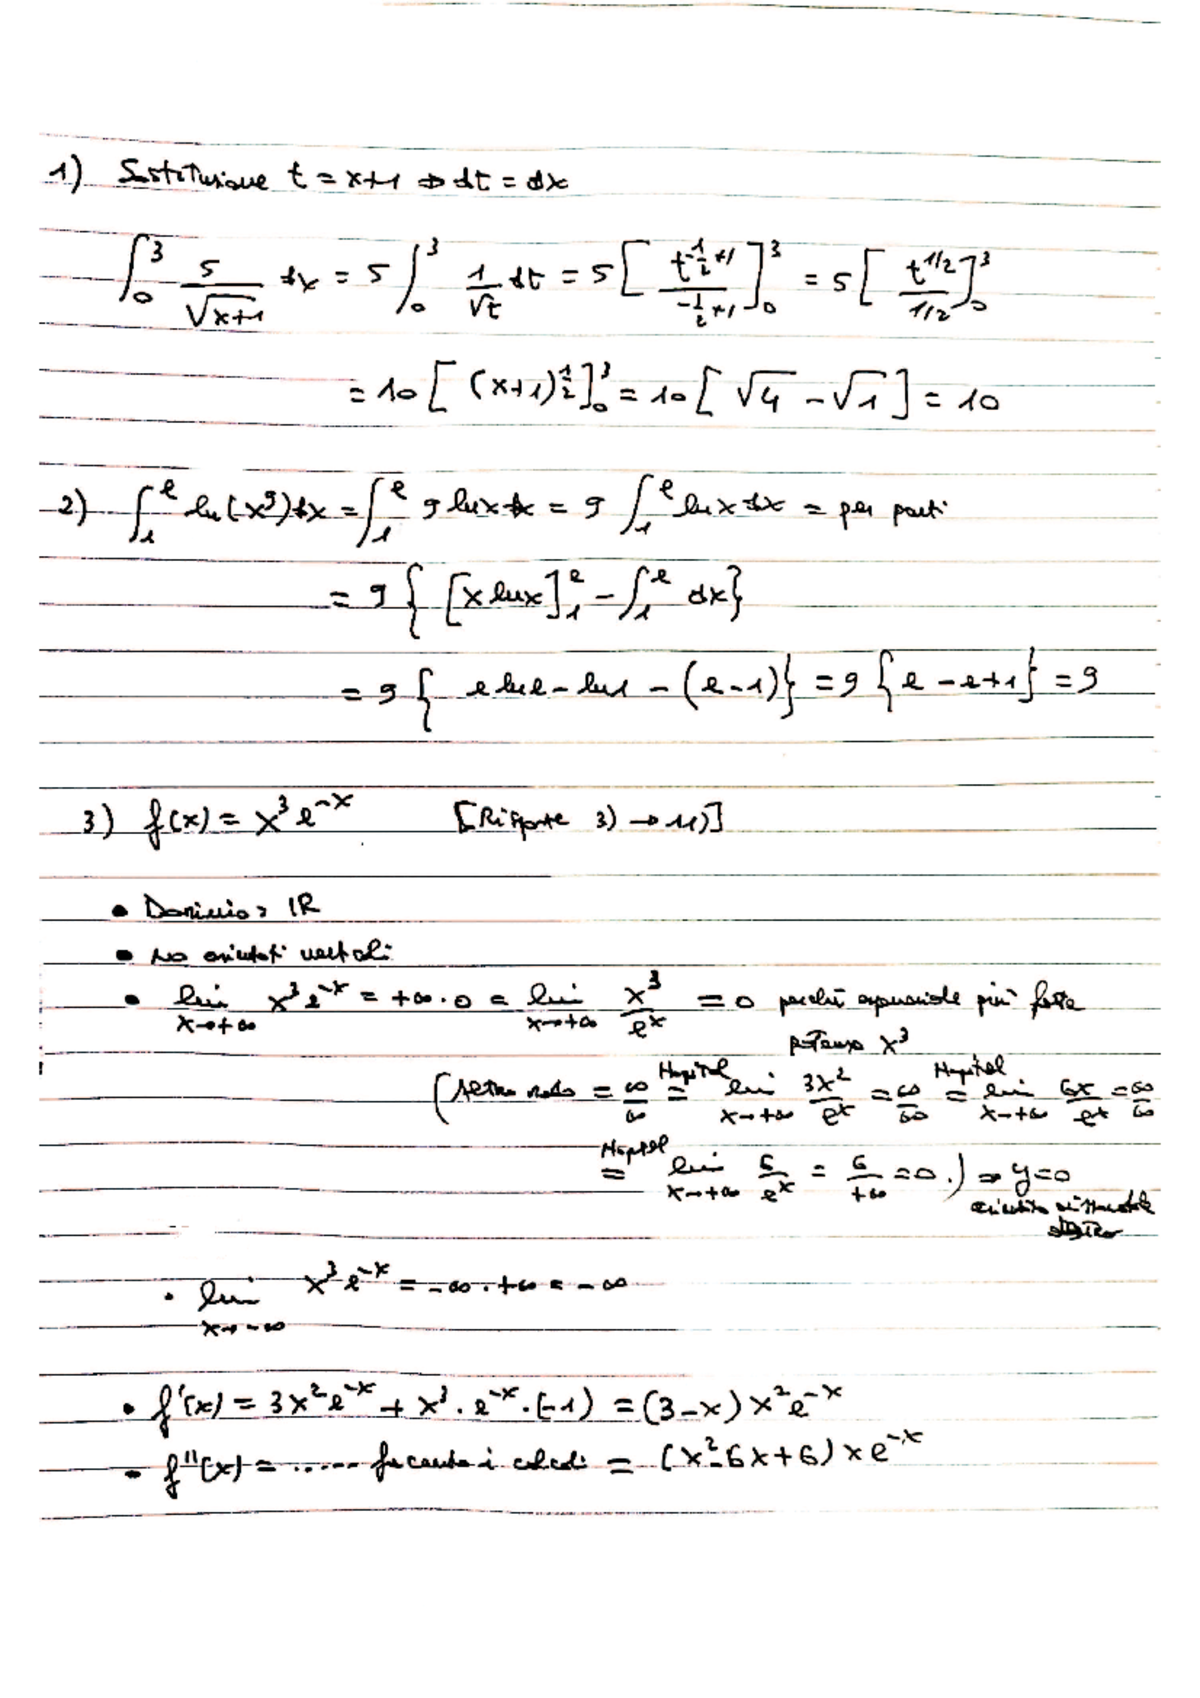 1) Sostituzione t = x+1 ⇒ dt = dx
∫₀³ 5/√(x+1) dx = 5 ∫₀³ 1/√t dt = 5 [ t^(-1/2+1) / (-1/2+1) ]₀³ = 5 [ t^(1/2) / (1/2) ]₀³
= 10 [ (x+1)^(1/2) ]₀³ = 10 [ √4 - √1 ] = 10
2) ∫₁^e ln(x⁹) dx = ∫₁^e 9 lnx dx = 9 ∫₁^e lnx dx = per parti
= 9 { [x lnx]₁^e - ∫₁^e dx}
= 9 { e lne - ln1 - (e-1)} = 9 {e - e+1} = 9
3) f(x) = x³ e^(-x) [Risposte 3) → 11)]
• Dominio: ℝ
• No asintoti verticali
• lim x→+∞ x³ e^(-x) = +∞ · 0 = lim x→+∞ x³/e^x = 0 perché esponenziale più forte
potenza x³
(Altro modo = ∞/∞ =Hopital lim x→+∞ 3x²/e^x = ∞/∞ =Hopital lim x→+∞ 6x/e^x = ∞/∞
=Hopital lim x→+∞ 6/e^x = 6/+∞ = 0.) ⇒ y=0
asintoto orizzontale
destro
• lim x→-∞ x³ e^(-x) = -∞ · +∞ = -∞
• f'(x) = 3x² e^(-x) + x³ · e^(-x) · (-1) = (3-x) x² e^(-x)
• f''(x) = ..... facendo i calcoli = (x²-6x+6) x e^(-x)